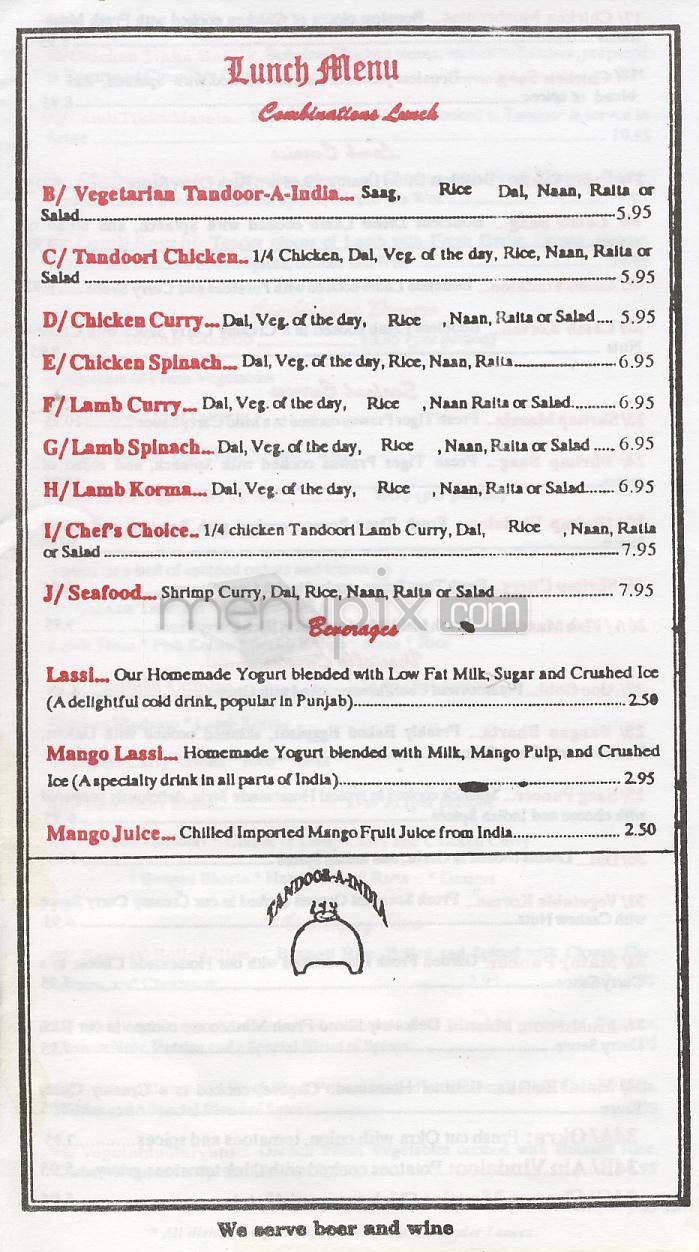 Lunch Menu
Combinations Lunch
B/ Vegetarian Tandoor-A-India... Saag, Rice Dal, Naan, Raita or
Salad....5.95
C/ Tandoori Chicken.. 1/4 Chicken, Dal, Veg. of the day, Rice, Naan, Raita or
Salad .... 5.95
D/ Chicken Curry... Dal, Veg. of the day, Rice , Naan, Raita or Salad.... 5.95
E/ Chicken Spinach... Dal, Veg. of the day, Rice, Naan, Raita....6.95
F/ Lamb Curry... Dal, Veg. of the day, Rice , Naan Raita or Salad....6.95
G/ Lamb Spinach... Dal, Veg. of the day, Rice , Naan, Raita or Salad .... 6.95
H/ Lamb Korma... Dal, Veg. of the day, Rice , Naan, Raita or Salad....6.95
I/ Chef's Choice.. 1/4 chicken Tandoori Lamb Curry, Dal, Rice , Naan, Raita
or Salad .... 7.95
J/ Seafood... Shrimp Curry, Dal, Rice, Naan, Raita or Salad .... 7.95
menupix.com
Beverages
Lassi... Our Homemade Yogurt blended with Low Fat Milk, Sugar and Crushed Ice
(A delightful cold drink, popular in Punjab)....2.50
Mango Lassi... Homemade Yogurt blended with Milk, Mango Pulp, and Crushed
Ice (A specialty drink in all parts of India).... 2.95
Mango Juice... Chilled Imported Mango Fruit Juice from India.... 2.50
TANDOOR-A-INDIA
We serve beer and wine